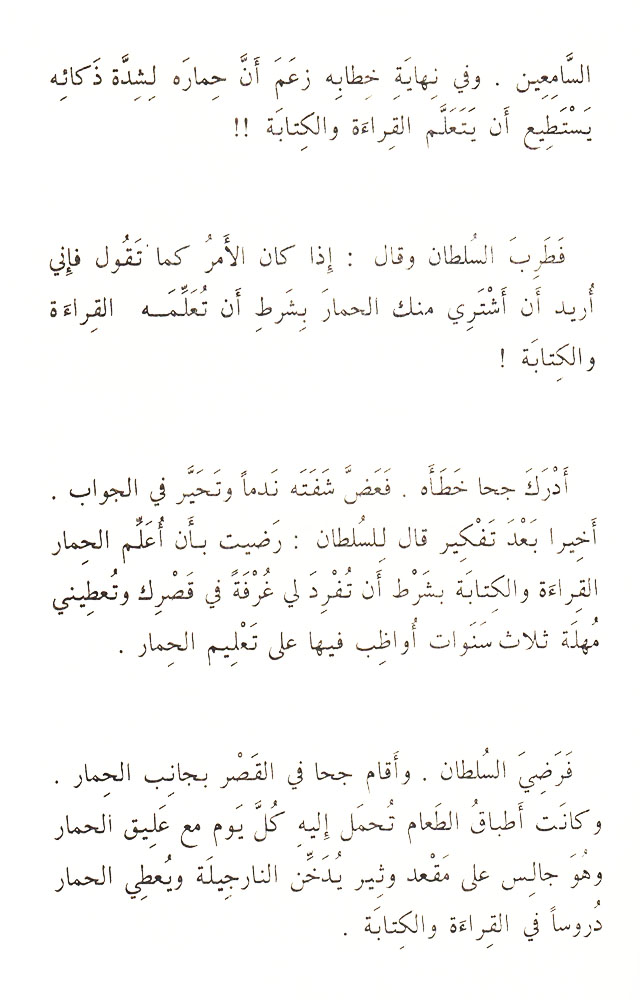 السَّامِعِين . وفي نِهايَةِ خِطابِه زعَمَ أَنَّ حِمارَه لِشِدَّة ذَكائِه
يَسْتَطِيع أَن يَتَعَلَّم القِراءَة والكِتابَة !!
فَطَرِبَ السُلطان وقال : إِذا كان الأَمرُ كما تَقُول فإِني
أُريد أَن أَشْتَرِي منك الحمارَ بِشَرطِ أَن تُعَلِّمَــه القِراءَة
والكِتابَة !
أَدْرَكَ جحا خَطَأَه . فَعَضَّ شَفَتَه نَدماً وتَحَيَّر في الجواب .
أَخِيرا بَعْدَ تَفْكِير قال لِلسُلطان : رَضيت بأَن أُعَلِّم الحِمار
القِراءَة والكِتابَة بشَرْط أَن تُفْرِدَ لي غُرْفَةً في قَصْرِك وتُعطِيني
مُهلَة ثلاث سَنَوات أُواظِب فيها على تَعْلِيم الحِمار .
فَرَضِيَ السُلطان . وأَقام جحا في القَصْر بجانِب الحِمار .
وكانَت أَطباقُ الطَعام تُحمَل إِليهِ كُلَّ يَوم مع عَلِيق الحمار
وهُوَ جالِس على مَقْعد وثِير يُدَخِّن النارجِيلَة ويُعطِي الحمار
دُروساً في القِراءَة والكِتابَة .